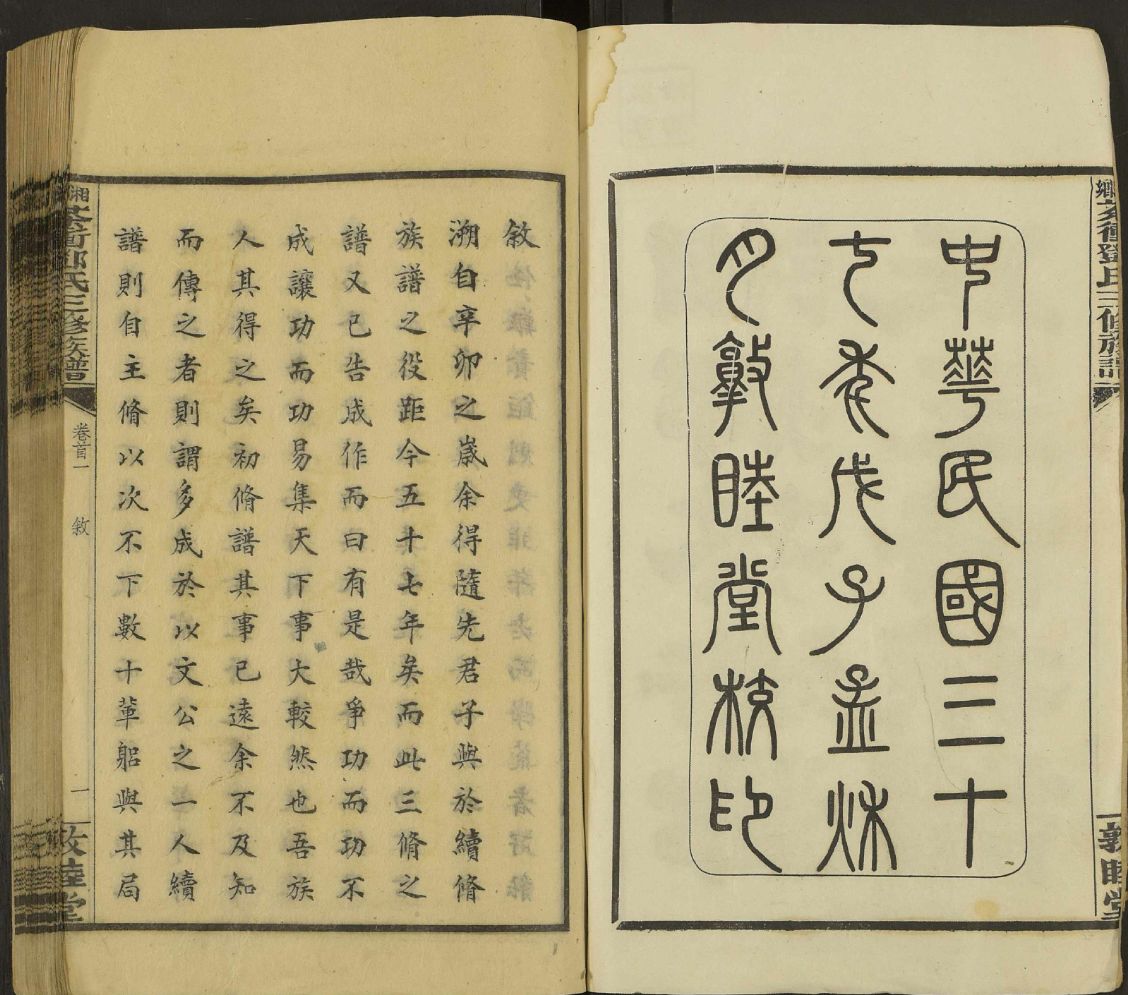 鄉茶衝鄧氏三修族譜
敦睦堂
中華民國三十
七年戊子孟秋
月敦睦堂校印
敘
溯自辛卯之歲余得隨先君子與於續脩
族譜之役距今五十七年矣而此三脩之
譜又已告成作而曰有是哉爭功而功不
成讓功而功易集天下事大較然也吾族
人其得之矣初脩譜其事已遠余不及知
而傳之者則謂多成於以文公之一人續
譜則自主脩以次不下數十輩躳與其局
湘茶衝鄧氏三修族譜
卷首一
敘
一
敦睦堂